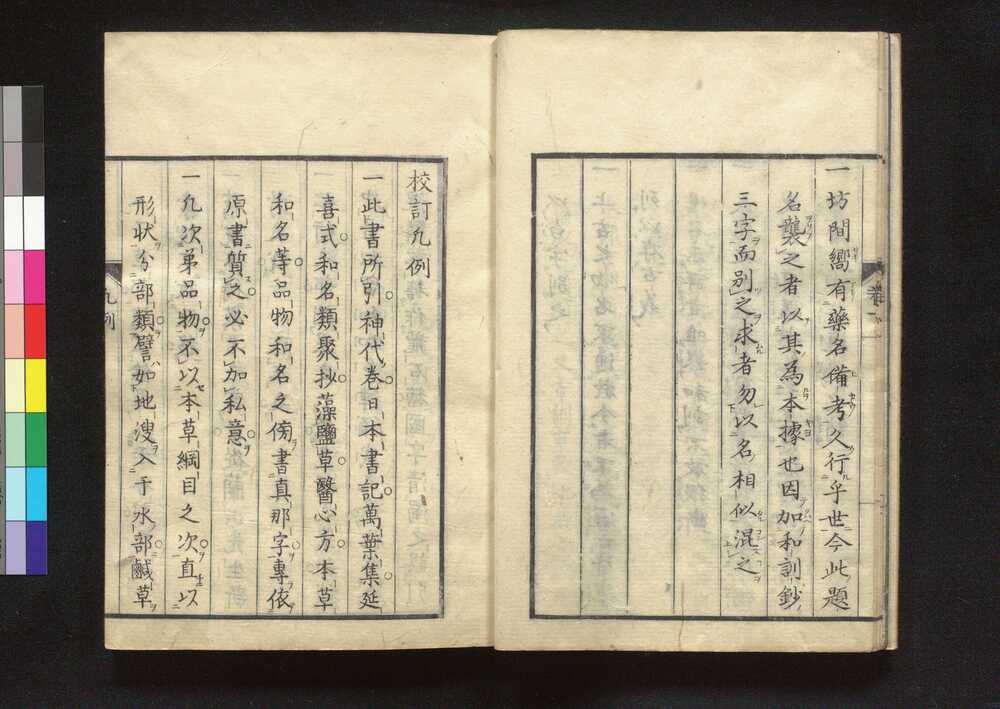 一坊間嚮有藥名備考久行乎世今此題
名襲之者以其為本據也因加和訓鈔
三字而別之求者勿以名相似混之
校訂凡例
一此書所引神代卷日本書記萬葉集延
喜式和名類聚抄藻鹽草醫心方本草
和名等品物和名之傍書真那字專依
原書質之必不加私意
一凡次第品物不以本草綱目之次直以
形狀分部類譬如地溲入于水部鹹草
凡例